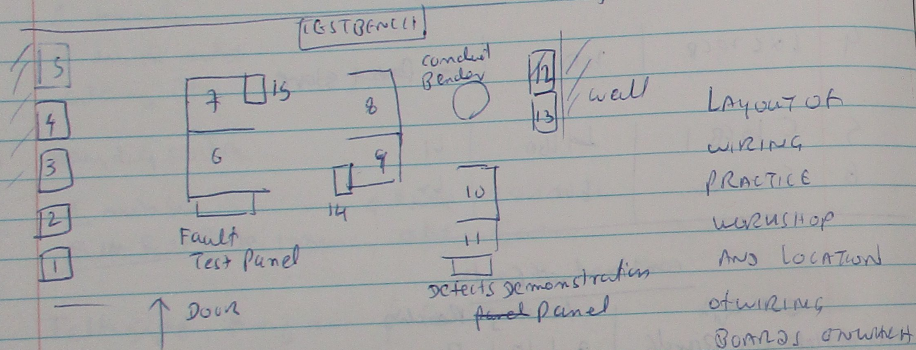 TESTBENCH
5
4
3
2
1
7
15
8
6
9
14
Fault
Test Panel
conduit
Bender
12
13
wall
10
11
Defects Demonstration
panel Panel
DOOR
LAYOUT OF
WIRING
PRACTICE
WORKSHOP
AND LOCATION
of WIRING
BOARDS ON WHICH